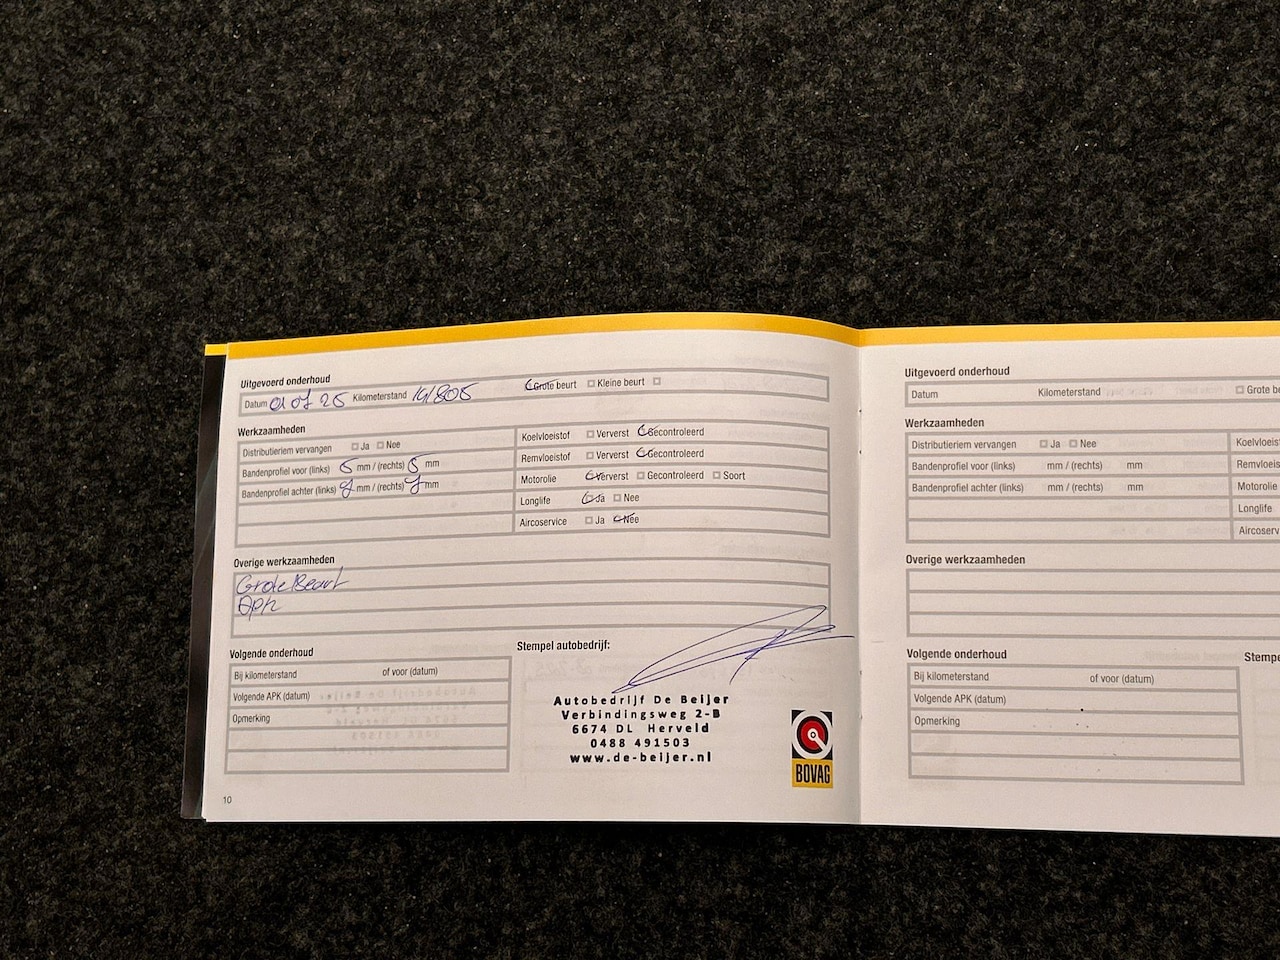 Uitgevoerd onderhoud
Datum Kilometerstand Grote beurt Kleine beurt
Werkzaamheden
Distributieriem vervangen Ja Nee
Bandenprofiel voor (links) 5 mm / (rechts) 5 mm
Bandenprofiel achter (links) mm / (rechts) mm
Koelvloeistof Ververst Gecontroleerd
Remvloeistof Ververst Gecontroleerd
Motorolie Ververst Gecontroleerd Soort
Longlife Ja Nee
Aircoservice Ja Nee
Overige werkzaamheden
Grote Beurt
Apk
Volgende onderhoud
Bij kilometerstand of voor (datum)
Volgende APK (datum)
Opmerking
Stempel autobedrijf:
Autobedrijf De Beijer
Verbindingsweg 2-B
6674 DL Herveld
0488 491503
www.de-beijer.nl
BOVAG
10
Uitgevoerd onderhoud
Datum Kilometerstand Grote be
Werkzaamheden
Distributieriem vervangen Ja Nee
Bandenprofiel voor (links) mm / (rechts) mm
Bandenprofiel achter (links) mm / (rechts) mm
Koelvloeis
Remvloeis
Motorolie
Longlife
Aircoserv
Overige werkzaamheden
Volgende onderhoud
Bij kilometerstand of voor (datum)
Volgende APK (datum)
Opmerking
Stempe